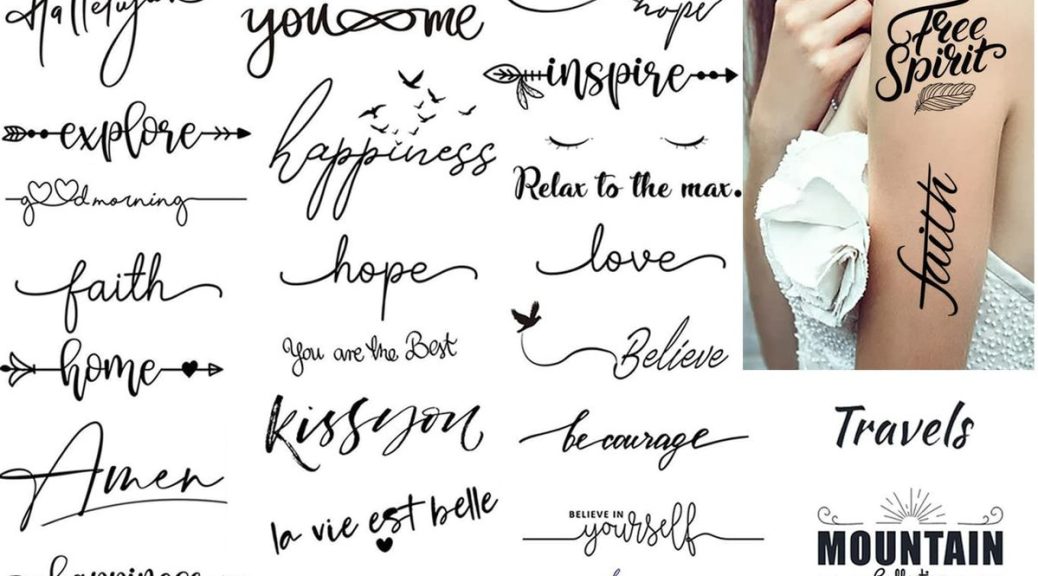 Hallelujah
you me
hope
explore
happiness
inspire
good morning
Relax to the max.
faith
hope
love
home
You are the Best
Believe
Amen
kiss you
be courage
la vie est belle
BELIEVE IN
yourself
happiness
Free
Spirit
faith
Travels
MOUNTAIN